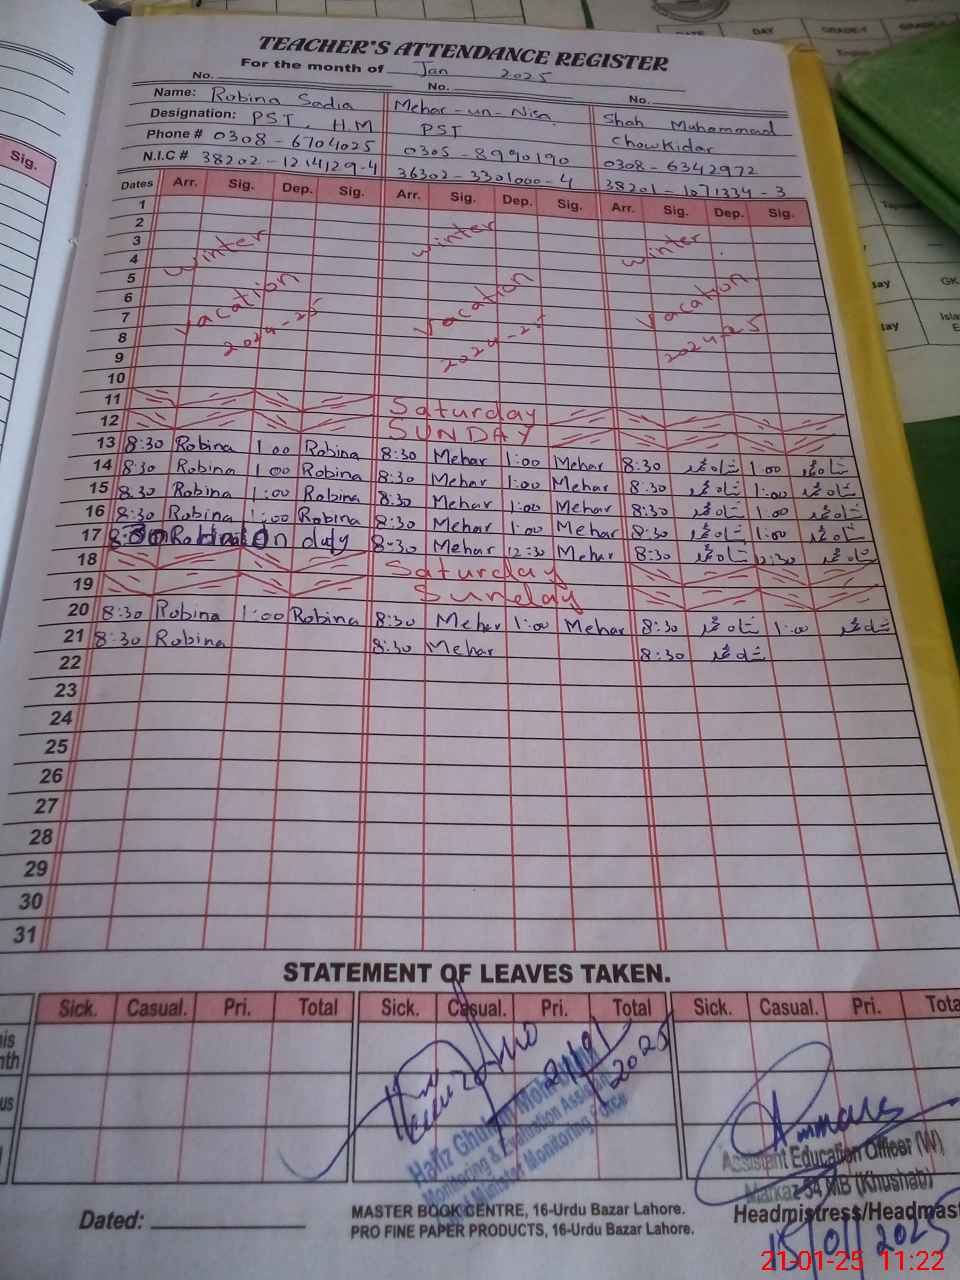 TEACHER'S ATTENDANCE REGISTER
For the month of Jan 2025
No. No. No.
Name: Robina Sadia Mehar-un-Nisa Shah Muhammad
Designation: PST, H.M PST Chowkidar
Phone # 0308-6704025 0305-8990190 0308-6342972
N.I.C # 38202-1214129-4 36302-3301000-4 38201-1071334-3
Dates Arr. Sig. Dep. Sig. Arr. Sig. Dep. Sig. Arr. Sig. Dep. Sig.
1
2
3 winter winter winter
4
5
6 vacation vacation vacation
7
8 2024-25 2024-25 2024-25
9
10
11 Saturday
12 SUNDAY
13 8:30 Robina 1:00 Robina 8:30 Mehar 1:00 Mehar 8:30 شاہ محمد 1:00 شاہ محمد
14 8:30 Robina 1:00 Robina 8:30 Mehar 1:00 Mehar 8:30 شاہ محمد 1:00 شاہ محمد
15 8:30 Robina 1:00 Robina 8:30 Mehar 1:00 Mehar 8:30 شاہ محمد 1:00 شاہ محمد
16 8:30 Robina 1:00 Robina 8:30 Mehar 1:00 Mehar 8:30 شاہ محمد 1:00 شاہ محمد
17 8:30 Robina On duty 8:30 Mehar 12:30 Mehar 8:30 شاہ محمد 12:30 شاہ محمد
18 Saturday
19 Sunday
20 8:30 Robina 1:00 Robina 8:30 Mehar 1:00 Mehar 8:30 شاہ محمد 1:00 شاہ محمد
21 8:30 Robina 8:30 Mehar 8:30 شاہ محمد
22
23
24
25
26
27
28
29
30
31
STATEMENT OF LEAVES TAKEN.
Sick. Casual. Pri. Total Sick. Casual. Pri. Total Sick. Casual. Pri.
21/01/2025
Hafiz Ghulam
Monitoring & Evaluation Assistant
Monitoring Force
Assistant Education Officer (W)
Markaz 54 MB (Khushab)
Dated:
MASTER BOOK CENTRE, 16-Urdu Bazar Lahore.
PRO FINE PAPER PRODUCTS, 16-Urdu Bazar Lahore.
Headmistress/Headmast
15/01/2025
21-01-25 11:22
Sig.
DAY